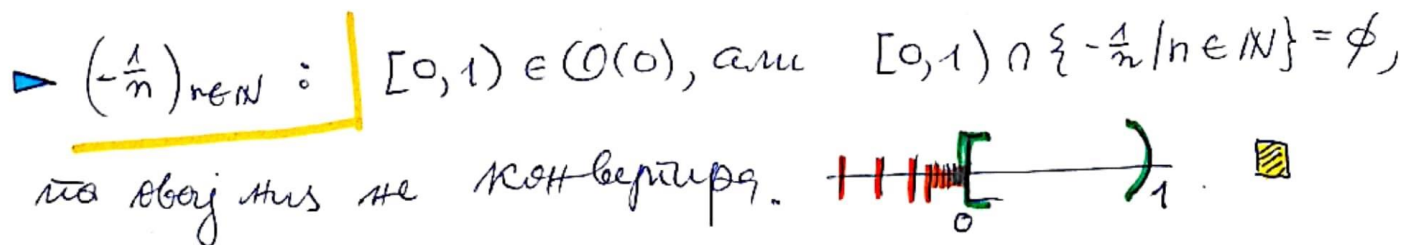 ► (-1/n)_{n∈ℕ} : [0,1) ∈ O(0), али [0,1) ∩ {-1/n | n∈ℕ} = ∅,
па овај низ не конвергира.
0 1